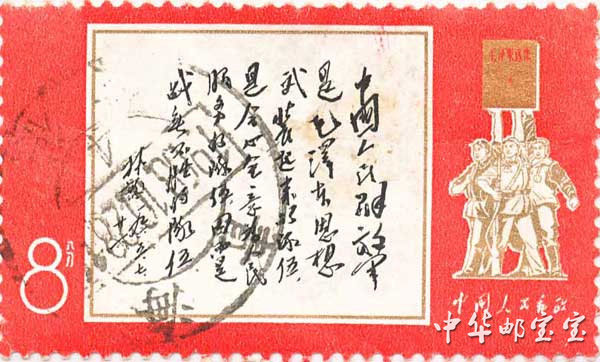 中國人民解放军
是毛澤东思想
武裝起来的队伍
是全心全意为人民
服务的队伍因而是
战无不胜的队伍
林彪
毛泽东选集
8分
中国人民邮政
中华邮宝宝
海